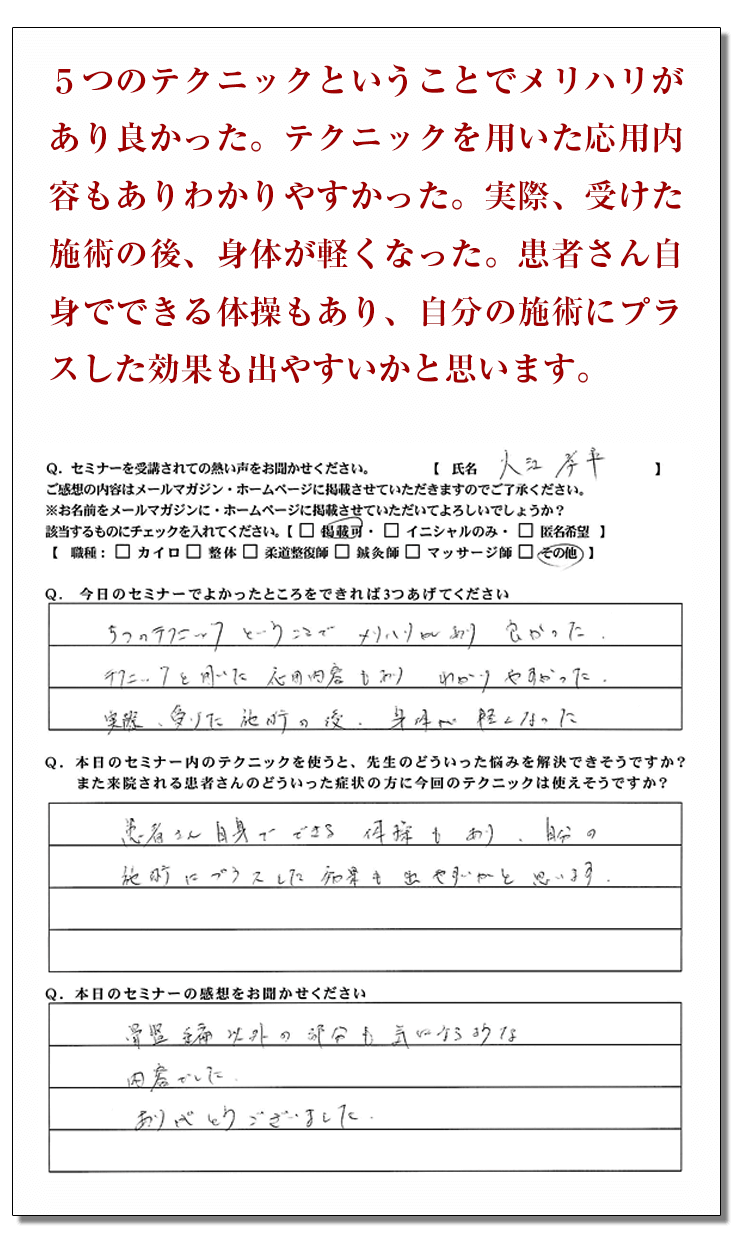 ５つのテクニックということでメリハリが
あり良かった。テクニックを用いた応用内
容もありわかりやすかった。実際、受けた
施術の後、身体が軽くなった。患者さん自
身でできる体操もあり、自分の施術にプラ
スした効果も出やすいかと思います。
Q．セミナーを受講されての熱い声をお聞かせください。 【 氏名 大江 孝平 】
ご感想の内容はメールマガジン・ホームページに掲載させていただきますのでご了承ください。
※お名前をメールマガジンに・ホームページに掲載させていただいてよろしいでしょうか？
該当するものにチェックを入れてください。【 □ 掲載可・ □ イニシャルのみ・ □ 匿名希望 】
【 職種： □ カイロ □ 整体 □ 柔道整復師 □ 鍼灸師 □ マッサージ師 □ その他 】
Q． 今日のセミナーでよかったところをできれば3つあげてください
5つのテクニックということで メリハリがあり 良かった．
テクニックを用いた 応用内容もあり わかりやすかった．
実際、受けた 施術の後、身体が 軽くなった
Q．本日のセミナー内のテクニックを使うと、先生のどういった悩みを解決できそうですか？
また来院される患者さんのどういった症状の方に今回のテクニックは使えそうですか？
患者さん自身で できる 体操も あり、自分の
施術にプラスした 効果も 出やすいかと 思います．
Q．本日のセミナーの感想をお聞かせください
骨盤 痛以外の部分も 気になる様な
内容でした．
ありがとうございました．